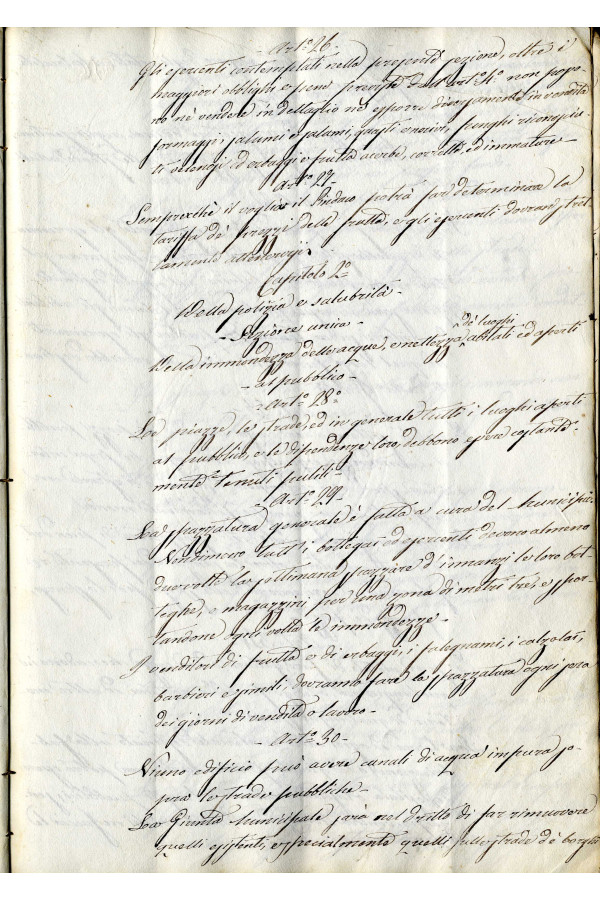 - Art.° 26. -
Gli esercenti contemplati nella presente sezione, oltre i
maggiori obblighi e pene previste dall'art.° 4° non posso-
no nè vendere in dettaglio nè esporre diversamente in vendita
formaggi, salumi e salami, guasti e nocivi, funghi
ti velenosi ed erbaggi e frutta acerbe, corrotte, ed immature -
Art.° 27 -
Semprecchè il voglia il Sindaco potrà far determinare la
tariffa de' prezzi delle frutta, e gli esercenti dovranno stret-
tamente attenervisi.
Capitolo 2°
Della polizia e salubrità -
- Sezione unica -
Della immondezza delle acque, e nettezza de' luoghi abitati ed aperti
- al pubblico -
- Art.° 28°
Le piazze, le strade, ed in generale tutti i luoghi aperti
al pubblico, e le dipendenze loro, debbono essere costante-
mente tenuti puliti -
- Art.° 29 -
La spazzatura generale è fatta a cura del Municipio.
Nondimeno tutti i bottegai ed esercenti devono almeno
due volte la settimana spazzare d'innanzi le loro bot-
teghe, e magazzini per una zona di metri tre, e spor-
tandone ogni volta le immondezze -
I venditori di frutta e di erbaggi, i falegnami, i calzolai,
barbieri e simili, dovranno fare la spazzatura ogni sera
dei giorni di vendita o lavoro -
- Art.° 30 -
Niuno edificio può avere canali di acqua impura so-
pra le strade pubbliche -
La Giunta Municipale sarà nel dritto di far rimuovere
quelli esistenti, e specialmente quelli sulle strade de' borghi